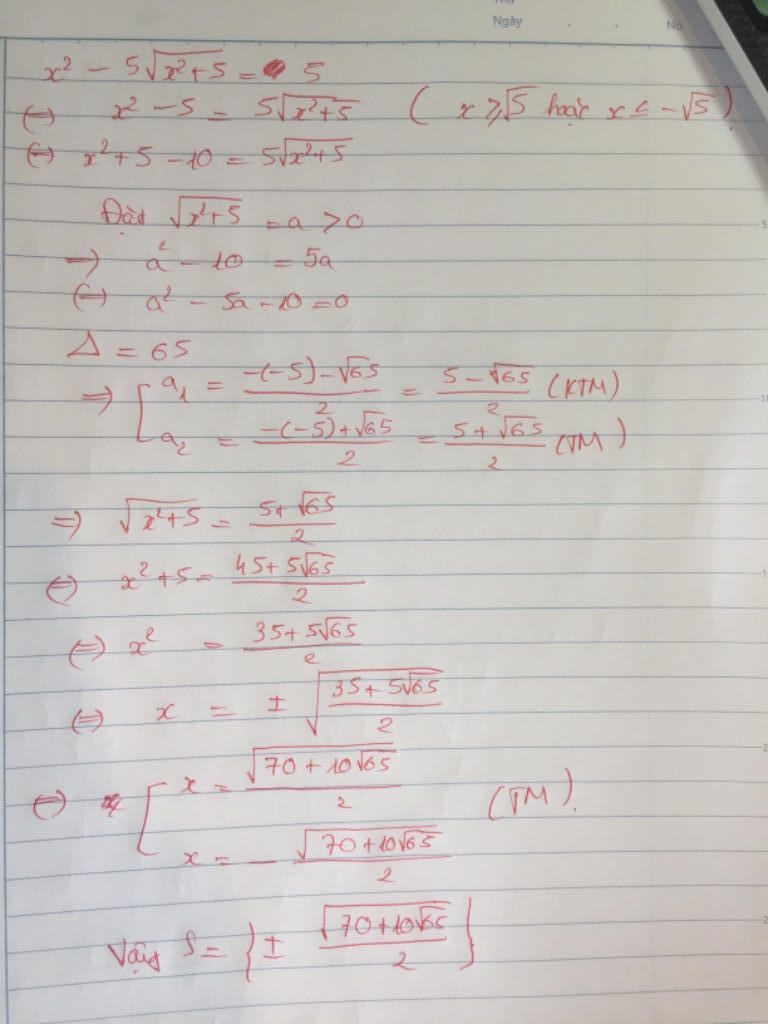 Thứ
Ngày . . No.
x² − 5√(x²+5) = 5
(=) x² − 5 = 5√(x²+5) ( x ≥ √5 hoặc x ≤ −√5 )
(=) x² + 5 − 10 = 5√(x²+5)
Đặt √(x²+5) = a > 0
=) a² − 10 = 5a
(=) a² − 5a − 10 = 0
Δ = 65
=) [ a₁ = (−(−5) − √65)/2 = (5 − √65)/2 (KTM)
a₂ = (−(−5) + √65)/2 = (5 + √65)/2 (TM)
=) √(x²+5) = (5 + √65)/2
(=) x² + 5 = (45 + 5√65)/2
(=) x² = (35 + 5√65)/2
(=) x = ± √((35 + 5√65)/2)
(=) [ x = √(70 + 10√65)/2 (TM).
x = − √(70 + 10√65)/2
Vậy S = { ± √(70 + 10√65)/2 }